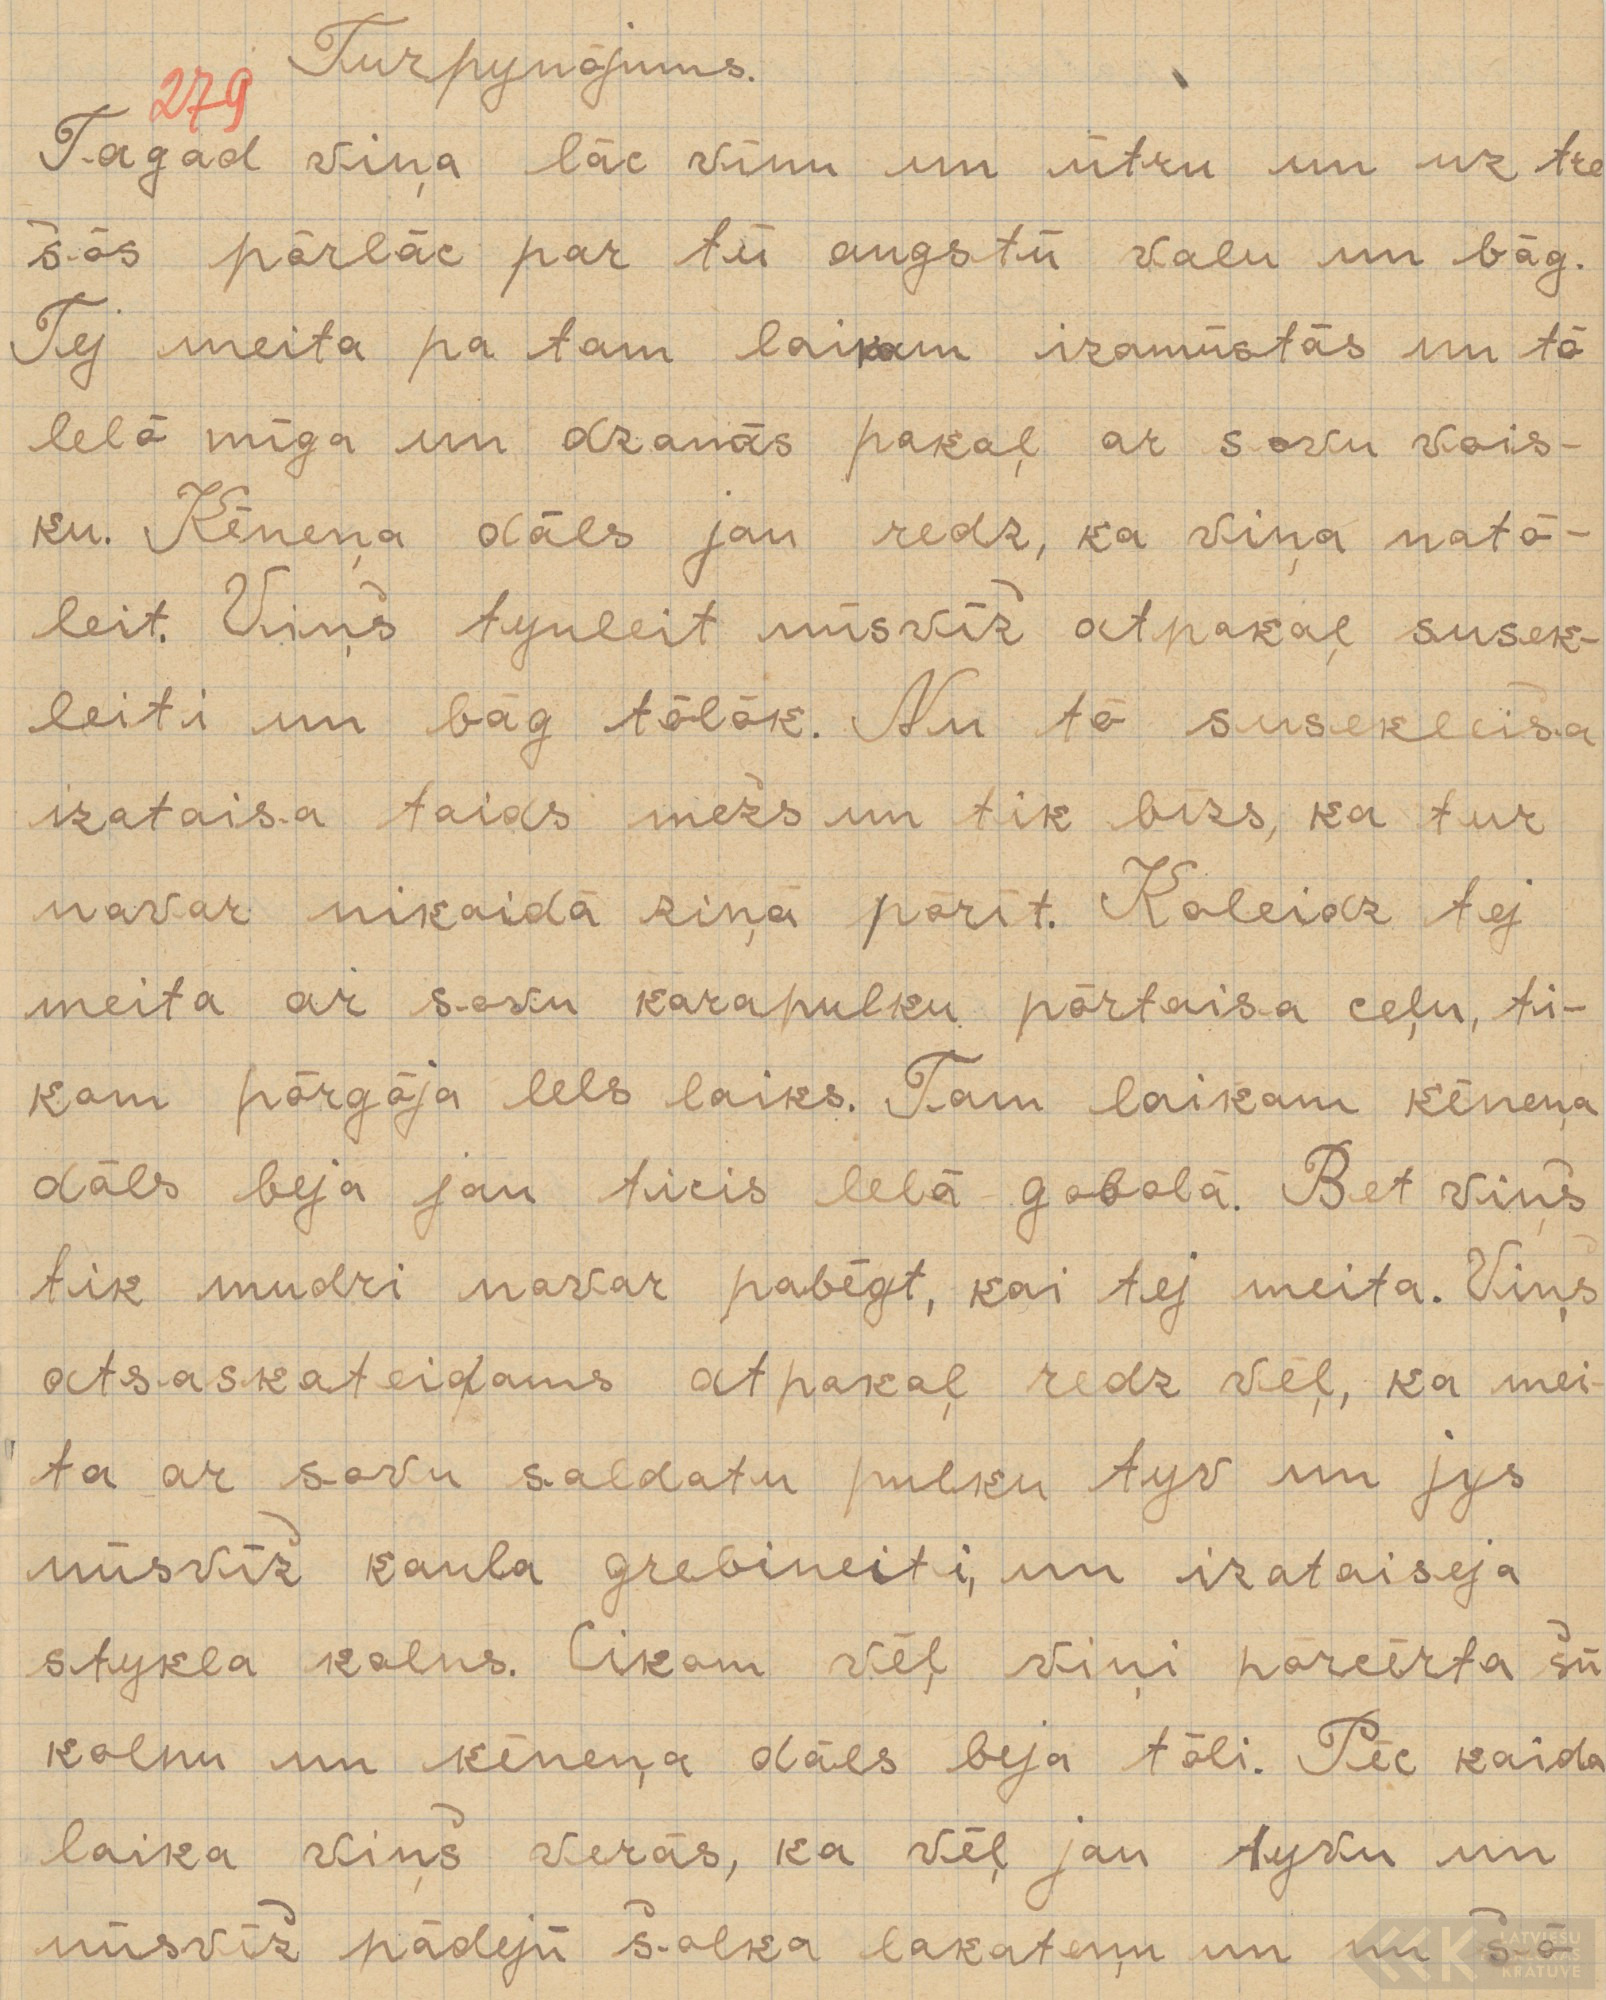 Turpynōjums.
279
Tagad viņa lāc vīnu un ūtru un uz tre
šōs pōrlāc par tū augstū valu un bāg.
Tej meita pa tam laikam izamūstās un tō
lelō mīga un dzanās pakaļ ar sovu vois-
ku. Kēneņa dāls jau redz, ka viņa natō-
leit. Viņš tyuleit nūsvīž atpakaļ susek-
leiti un bāg tōlōk. Nu tō susekleiša
izataisa taids mežs un tik bīzs, ka tur
navar nikaidā ziņā pōrīt. Koleidz tej
meita ar sovu karapulku pōrtaisa ceļu, ti-
kom pōrgōja lels laiks. Tam laikam kēneņa
dāls beja jau ticis lelā gobolā. Bet viņš
tik mudri navar pabēgt, kai tej meita. Viņš
atsaskateidams atpakaļ redz vēļ, ka mei-
ta ar sovu saldatu pulku tyv un jys
nūsvīž kaula grebineiti, un izataiseja
stykla kolns. Cikom vēļ viņi pōrcērta šū
kolnu un kēneņa dāls beja tōli. Pēc kaida
laika viņš verās, ka vēļ jau tyvu un
nūsvīž pādejū šolka lakateņu un nu šō
LATVIEŠU
KRĀTUVE